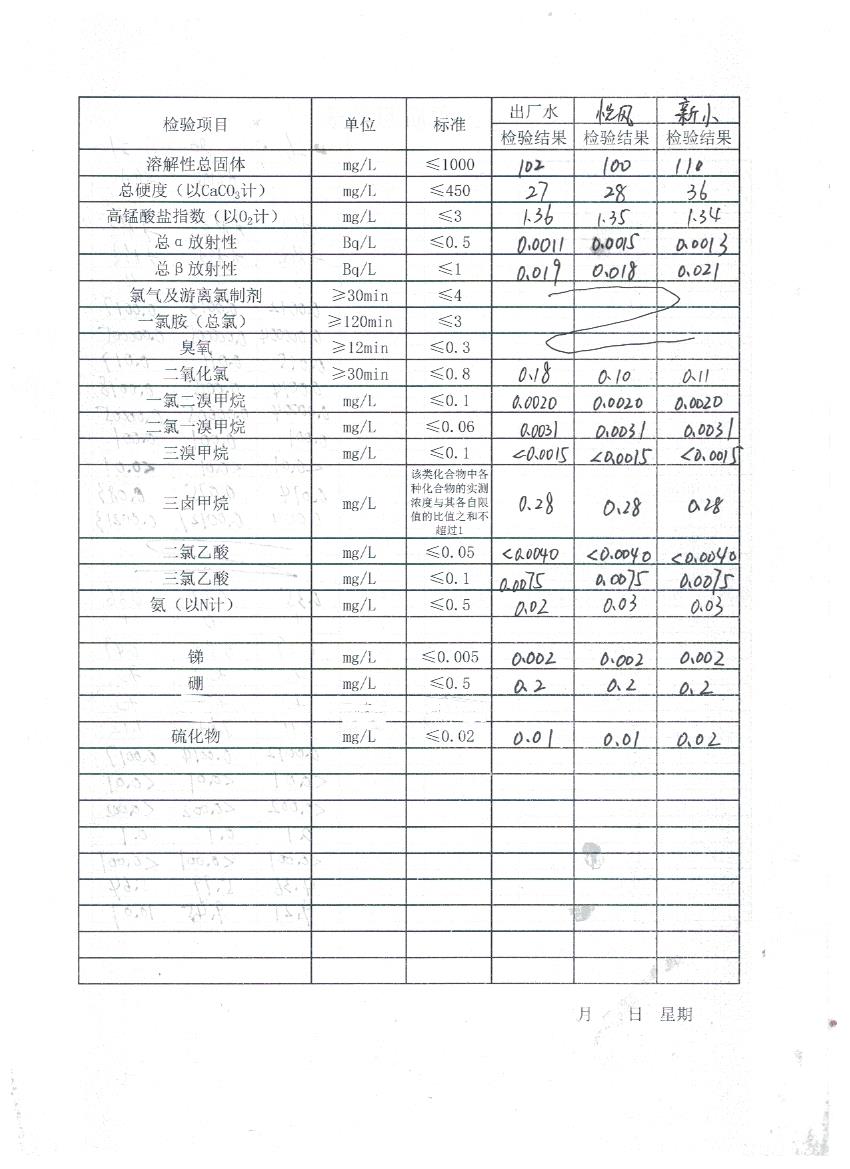 检验项目 单位 标准 出厂水 悦风 新小
检验结果 检验结果 检验结果
溶解性总固体 mg/L ≤1000 102 100 110
总硬度（以CaCO₃计） mg/L ≤450 27 28 36
高锰酸盐指数（以O₂计） mg/L ≤3 1.36 1.35 1.34
总α放射性 Bq/L ≤0.5 0.0011 0.0015 0.0013
总β放射性 Bq/L ≤1 0.019 0.018 0.021
氯气及游离氯制剂 ≥30min ≤4
一氯胺（总氯） ≥120min ≤3
臭氧 ≥12min ≤0.3
二氧化氯 ≥30min ≤0.8 0.18 0.10 0.11
一氯二溴甲烷 mg/L ≤0.1 0.0020 0.0020 0.0020
二氯一溴甲烷 mg/L ≤0.06 0.0031 0.0031 0.0031
三溴甲烷 mg/L ≤0.1 <0.0015 <0.0015 <0.0015
三卤甲烷 mg/L 该类化合物中各
种化合物的实测
浓度与其各自限
值的比值之和不
超过1 0.28 0.28 0.28
二氯乙酸 mg/L ≤0.05 <0.0040 <0.0040 <0.0040
三氯乙酸 mg/L ≤0.1 0.0075 0.0075 0.0075
氨（以N计） mg/L ≤0.5 0.02 0.03 0.03
锑 mg/L ≤0.005 0.002 0.002 0.002
硼 mg/L ≤0.5 0.2 0.2 0.2
硫化物 mg/L ≤0.02 0.01 0.01 0.02
月 日 星期